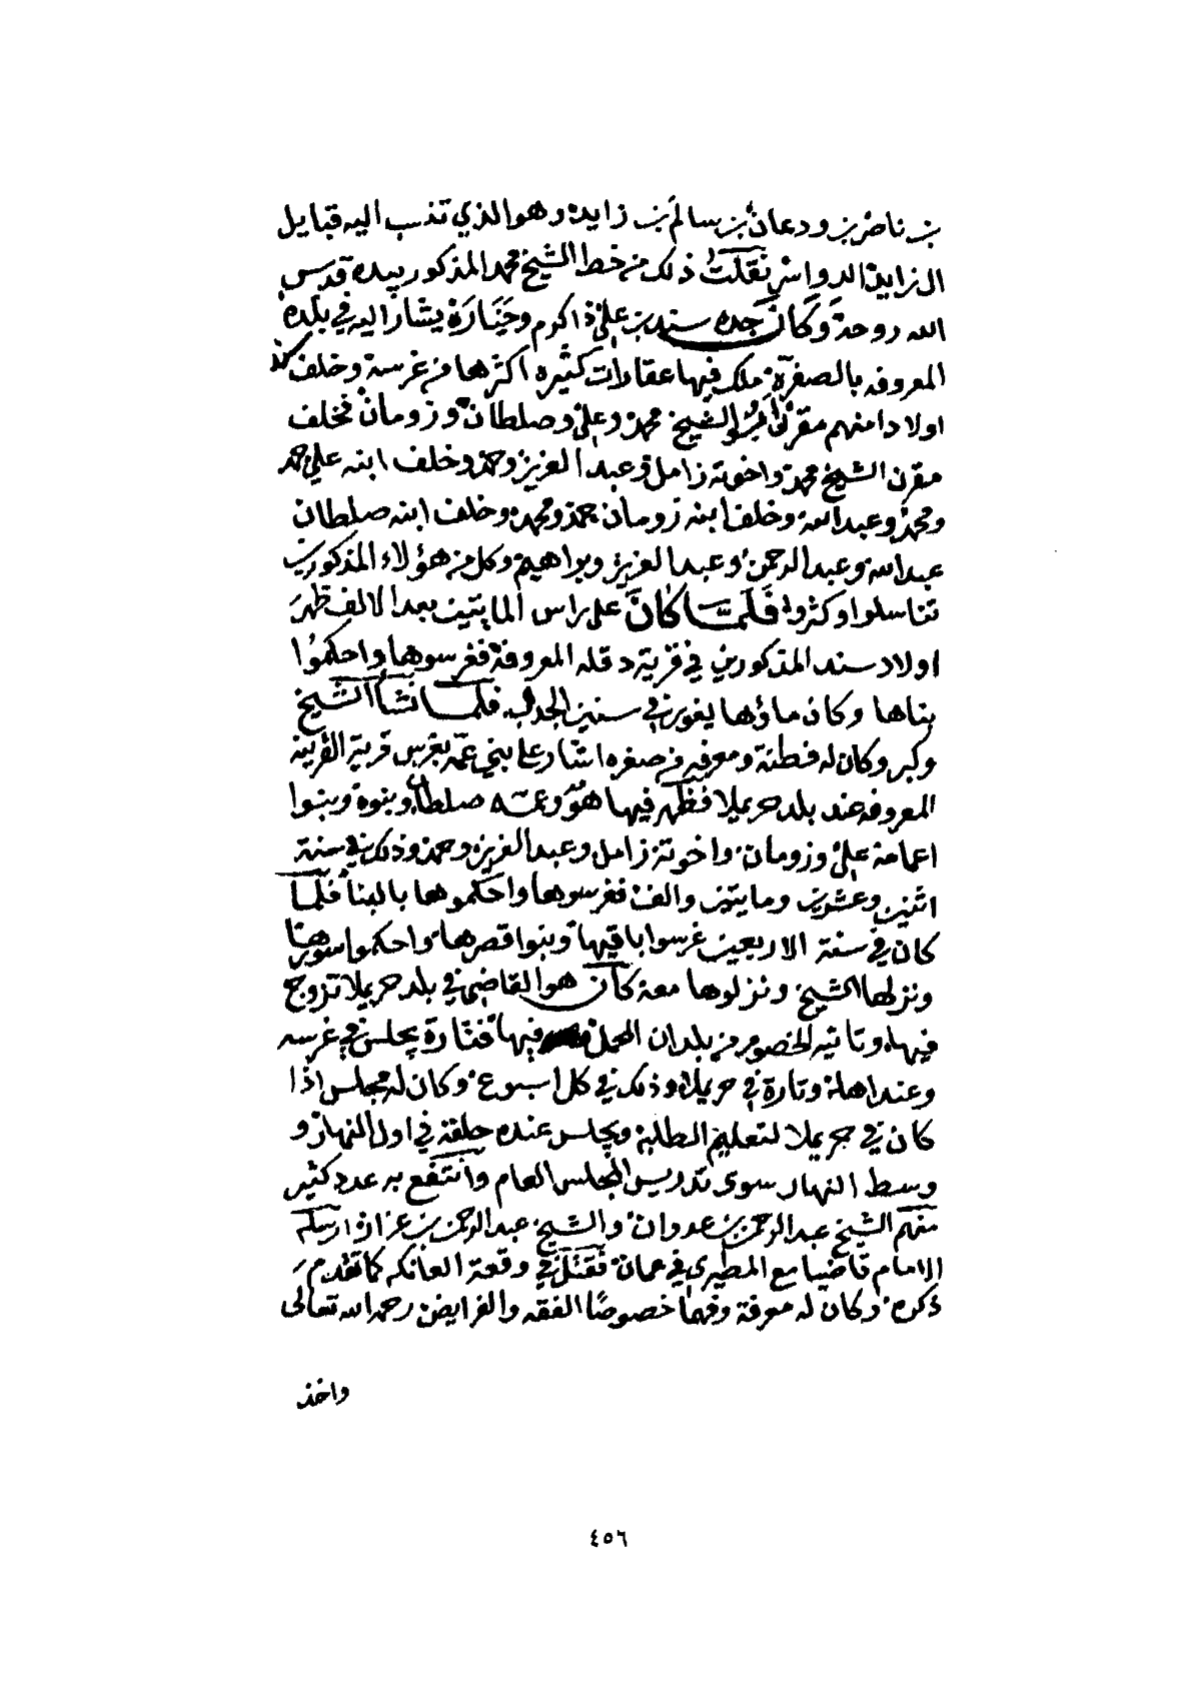 بن ناصر بن ودعان بن سالم بن زايد وهو الذي تنسب اليه قبايل
ال زايد الدواسر نقلت ذلك من خط الشيخ محمد المذكور بيده قدس
الله روحه وكان جده سند بن علي ذا كرم وخيارة يشار اليه في بلده
المعروفه بالصفرة ملك فيها عقارات كثيره اكثرها من غرسه وخلف سند
اولادا منهم مقرن ابو الشيخ محمد وعلي وصلطان وزومان فخلف
مقرن الشيخ محمد واخوته زامل وعبد العزيز وحمد وخلف ابنه علي حمد
ومحمد وعبد الله وخلف ابنه زومان حمد ومحمد وخلف ابنه صلطان
عبد الله وعبد الرحمن وعبد العزيز وبراهيم وكل من هؤلاء المذكورين
تناسلوا وكثروا فلما كان على راس المايتين بعد الالف ظهر
اولاد سند المذكورين في قرية دقله المعروفة فغرسوها واحكموا
بناها وكان ماؤها يغور في سنين الجدب فلما نشا الشيخ
وكبر وكان له فطنة ومعرفه من صغره اشار على بني عمه بغرس قرية القرينه
المعروفه عند بلد حريملا فظهر فيها هو وعمه صلطان وبنوه وبنوا
اعمامه علي وزومان واخوته زامل وعبد العزيز وحمد وذلك في سنة
اثنين وعشرين ومايتين والف فغرسوها واحكموها بالبنا فلما
كان في سنة الاربعين غرسوا باقيها وبنوا قصرها واحكموا سورها
ونزلها الشيخ ونزلوها معه كان هو القاضي في بلد حريملا تزوج
فيها وتاتيه الخصوم من بلدان المحمل فيها فتارة يجلس في غرسه
وعند اهله وتارة في حريملا وذلك في كل اسبوع وكان له مجلس اذا
كان في حريملا لتعليم الطلبة ويجلس عنده حلقة في اول النهار و
وسط النهار سوى تدريس المجلس العام وانتفع به عدد كثير
منهم الشيخ عبد الرحمن بن عدوان والشيخ عبد الرحمن بن عزاز ارسله
الامام قاضيا مع المطيري في عمان فقتل في وقعة العانكه كما تقدم
ذكره وكان له معرفة وفهما خصوصا الفقه والفرايض رحمه الله تعالى
واخذ
٤٥٦